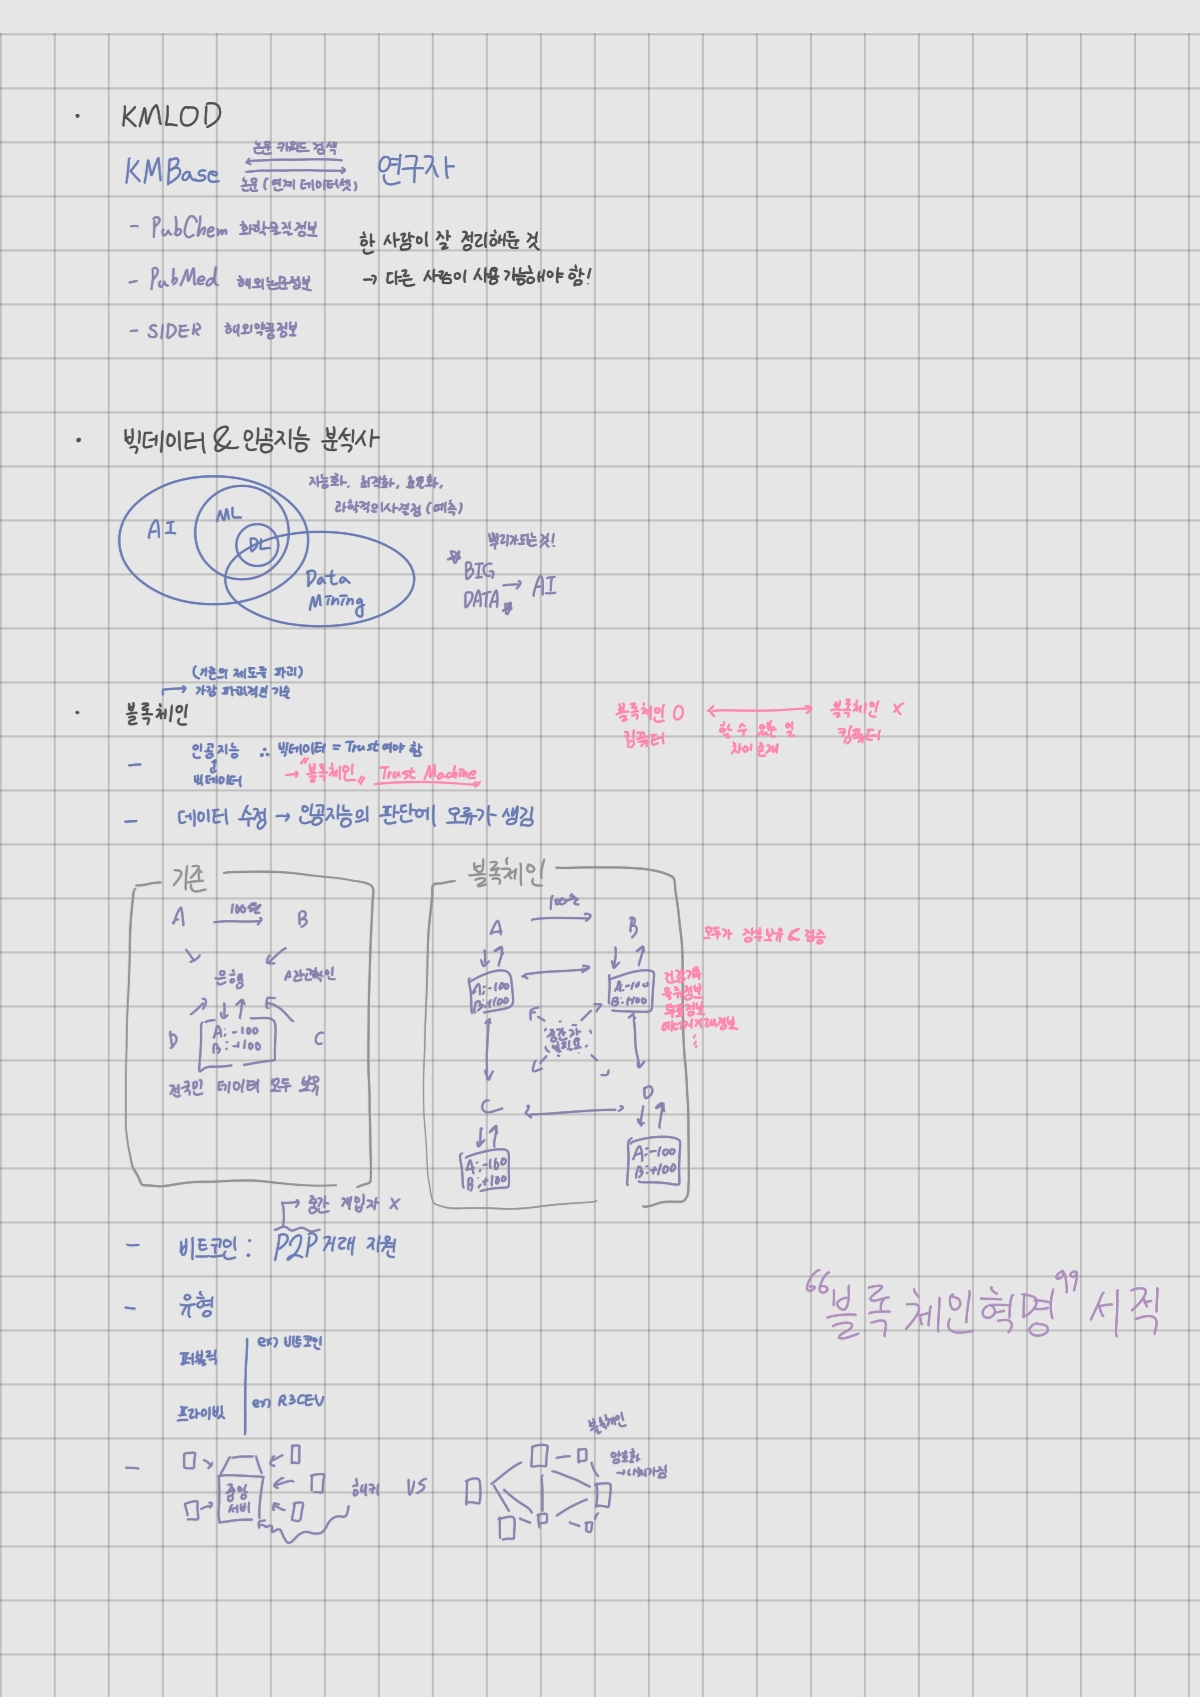 KMLOD
논문 키워드 검색
KMBase
연구자
논문 (연계 데이터셋)
- PubChem 화학물질정보
한 사람이 잘 정리해둔 것
→ 다른 사람이 사용 가능해야 함!
- PubMed 해외논문정보
- SIDER 해외약품정보
빅데이터 & 인공지능 분석사
지능화, 최적화, 효율화,
과학적의사결정 (예측)
AI
ML
DL
Data
Mining
뿌리가되는것!
BIG
DATA
→ AI
(기존의 제도를 파괴)
→ 가장 파괴적인 기술
블록체인
블록체인 O
컴퓨터
할 수 있는 일
차이 존재
블록체인 X
컴퓨터
- 인공지능
빅데이터
∴ 빅데이터 = Trust 여야 함
→ "블록체인" Trust Machine
- 데이터 수정 → 인공지능의 판단에 오류가 생김
기존
A
100만
B
은행
A잔고확인
D
A: -100
B: +100
C
전국민 데이터 모두 보유
블록체인
100만
A
B
모두가 장부보유 & 검증
A: -100
B: +100
A: -100
B: +100
건강기록
유통정보
투표정보
에너지거래정보
⋮
중간자
필요X
C
D
A: -100
B: +100
A: -100
B: +100
→ 중간 개입자 X
- 비트코인 : P2P 거래 지원
- 유형
퍼블릭
ex) 비트코인
프라이빗
ex) R3CEV
"블록체인혁명" 서적
- 중앙
서버
해커
VS
블록체인
암호화